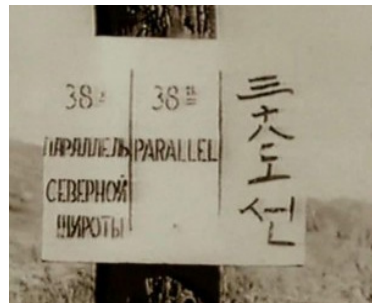 38я
ПАРАЛЛЕЛЬ
СЕВЕРНОЙ
ШИРОТЫ
38th
PARALLEL
三十八도선